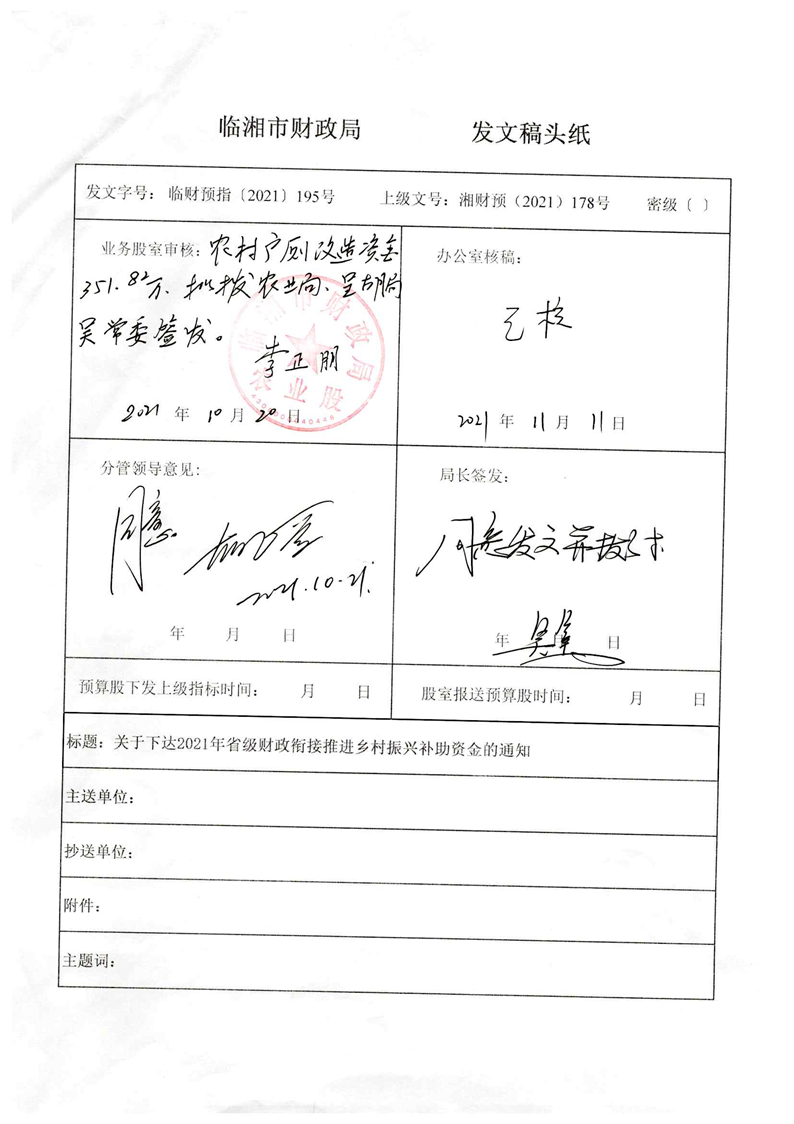 临湘市财政局 发文稿头纸
发文字号： 临财预指〔2021〕195号 上级文号：湘财预（2021）178号 密级〔 〕
业务股室审核：农村户厕改造资金
351.82万、拟拨农业局、呈胡局
吴常委签发。
李正明
2021 年 10 月 20 日
临湘市财政局
农业股
办公室核稿：
已核
2021 年 11 月 11 日
分管领导意见：
同意
2021.10.21.
年 月 日
局长签发：
同意发文并拨款
年 月 日
预算股下发上级指标时间： 月 日
股室报送预算股时间： 月 日
标题：关于下达2021年省级财政衔接推进乡村振兴补助资金的通知
主送单位：
抄送单位：
附件：
主题词：